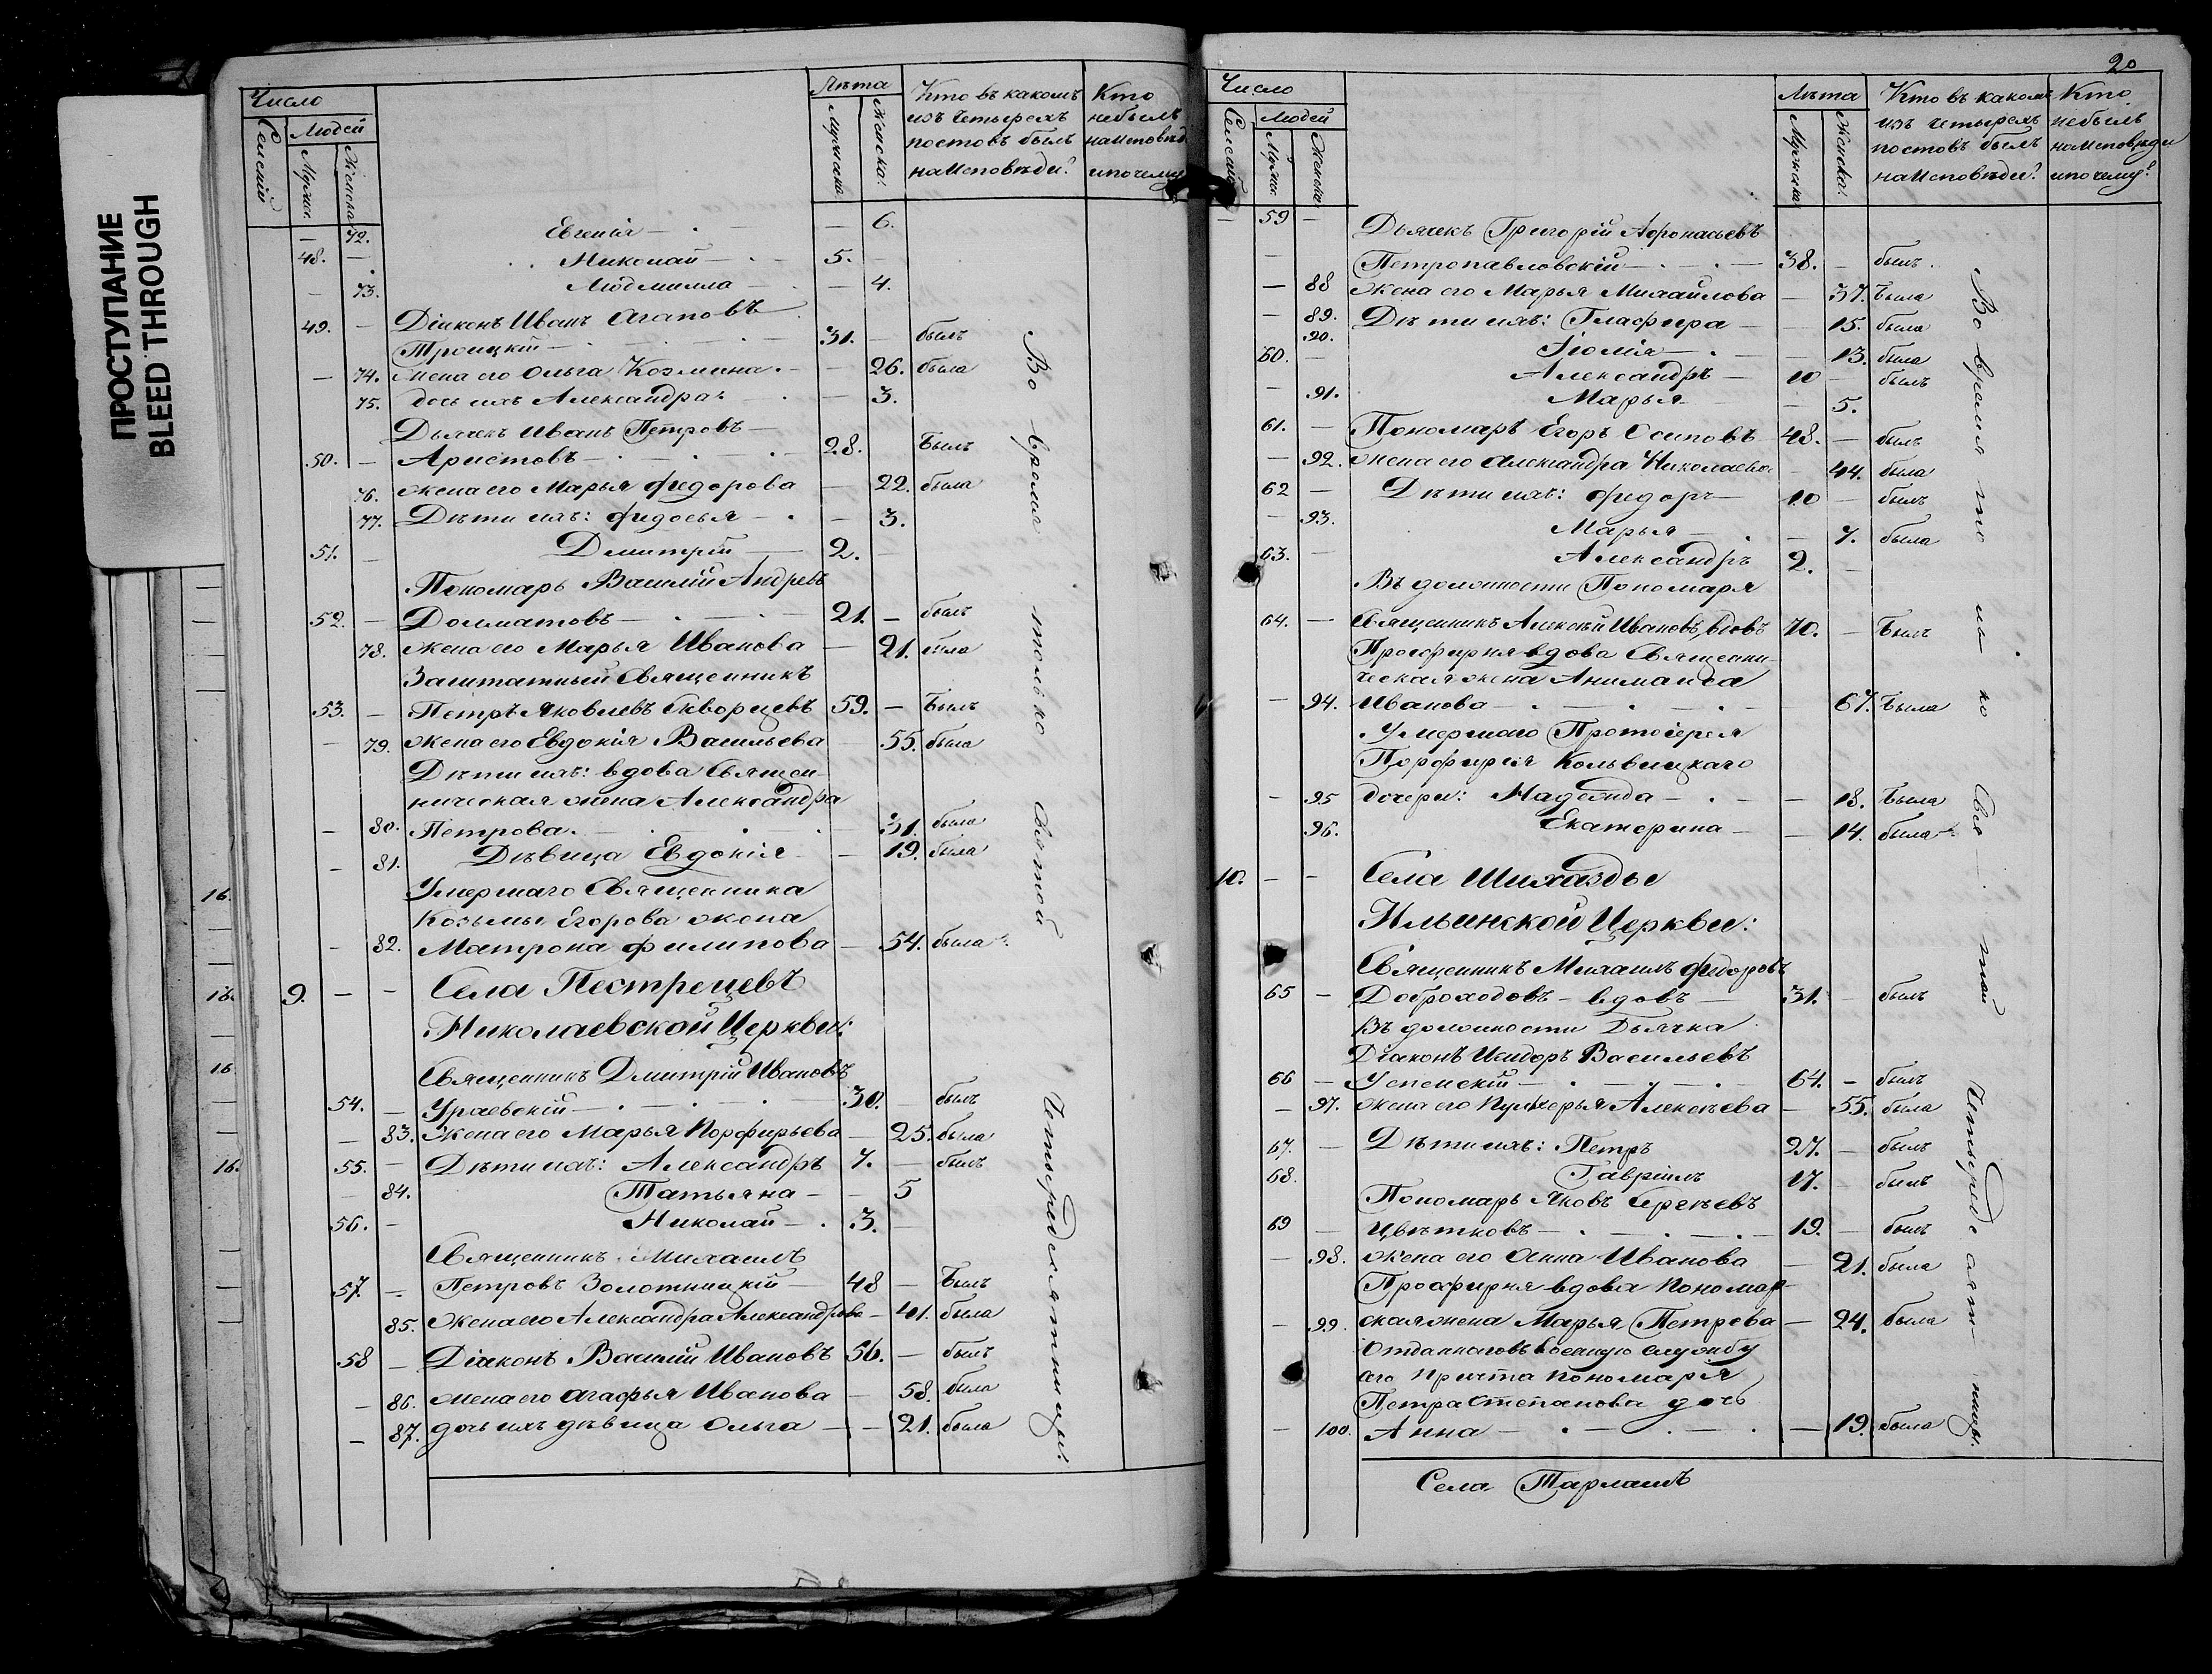 ПРОСТУПАНИЕ
BLEED THROUGH
16.
16.
16
16.
Число
Людей
Лѣта
Кто въ какомъ изъ четырехъ постовъ былъ на исповѣди?
Кто небылъ на исповѣд ипочему
— 72. Евгенія — — 6.
48. — Николай — 5. —
— 73. Людмилла — — 4.
49. — Діаконъ Иванъ Агаповъ
Троицкій — 31. — былъ
— 74. жена его Ольга Козмина — — 26. была
75. дочь ихъ Александра — 3.
Дьячекъ Иванъ Петровъ —
50. — Аристовъ — 28. былъ
76. жена его Марья Федорова — 22. была
77. Дѣти ихъ: Федосья — — 3.
51. — Дмитрій — 2. —
Пономарь Василій Андреевъ
52. — Долматовъ — 21. — былъ
78. жена его Марья Иванова — 21. была
Заштатный Священникъ
53. — Петръ Яковлевъ Скворцевъ 59. — былъ
— 79. жена его Евдокія Васильева 55. была
Дѣти ихъ: вдова Священ-
ническая жена Александра
— 80. Петрова. — 31. была
— 81. Дѣвица Евдокія — 19. была
Умершаго Священника
Козьмы Егорова жена
— 82. Матрона Филипова — 54. была.
9. — — Села Пестрецевъ
Николаевской Церкви:
Священникъ Дмитрій Ивановъ
54. — Ураевскій — 30. — былъ
— 83. Жена его Марья Порфирьева — 25. была
55. — Дѣти ихъ: Александръ 7. — былъ
— 84. Татьяна — — 5
56. — Николай — 3. —
Священникъ Михаилъ
57. — Петровъ Золотницкій — 48 — былъ
85. Жена его Александра Александрова — 41. была
58 — Діаконъ Василій Ивановъ 56. — былъ
— 86. жена его Агафья Иванова — 58. была
— 87. дочь ихъ дѣвица Ольга — — 21. была
Во время только Святой Четыредесятницы.
20
Число
Людей
Лѣта
Кто въ какомъ изъ четырехъ постовъ былъ на исповѣди?
Кто небылъ на исповѣди ипочему?
— 59 — Дьячекъ Григорій Афонасьевъ
Петропавловскій — 38. — былъ.
— 88 Жена его Марья Михайлова — 37. была
— 89. Дѣти ихъ: Глафира — — 15. была
90. — — 13. была
60. — Александръ — 10 — былъ
— 91. Марья — 5.
61. — Пономарь Егоръ Осиповъ 48. — былъ
— 92. жена его Александра Николаева — 44. была
62 — Дѣти ихъ: Федоръ — 10 — былъ
— 93. Марья — — 7. была
63. — Александръ 2. —
Въ должности Пономаря
64. — Священникъ Алексѣй Ивановъ, вдовъ 70. — былъ
Просфирня вдова Священни-
ческая жена Анимаиса
— 94. Иванова — 67. была
Умершаго Протоіерея
Порфирія Кольвицкаго
— 95 дочери: Надежда — — 18. была
96. Екатерина — — 14. была.
10. — — Села Шихазды
Ильинской Церкви:
Священникъ Михаилъ Федоровъ
65 — Доброходовъ — вдовъ — 31. — былъ
Въ должности Дьячка
Діаконъ Исидоръ Васильевъ
66 — Успенскій — 64. — былъ
— 97. жена его Пулхерья Алексѣева — 55. была
67. — Дѣти ихъ: Петръ 27. — былъ
68. Гавріилъ 17. — былъ
Пономарь Яковъ Сергѣевъ
69 — Цвѣтковъ — 19. — былъ
— 98. жена его Анна Иванова — 21. была
Просфирня вдова Пономар-
— 99. ская жена Марья Петрова — 24. была
Отданнаго въ военную службу
сего Причта Пономаря
Петра Степанова дочь
— 100. Анна — — 19. была
Во время Святой Четыредесятницы.
Села Тарлашъ